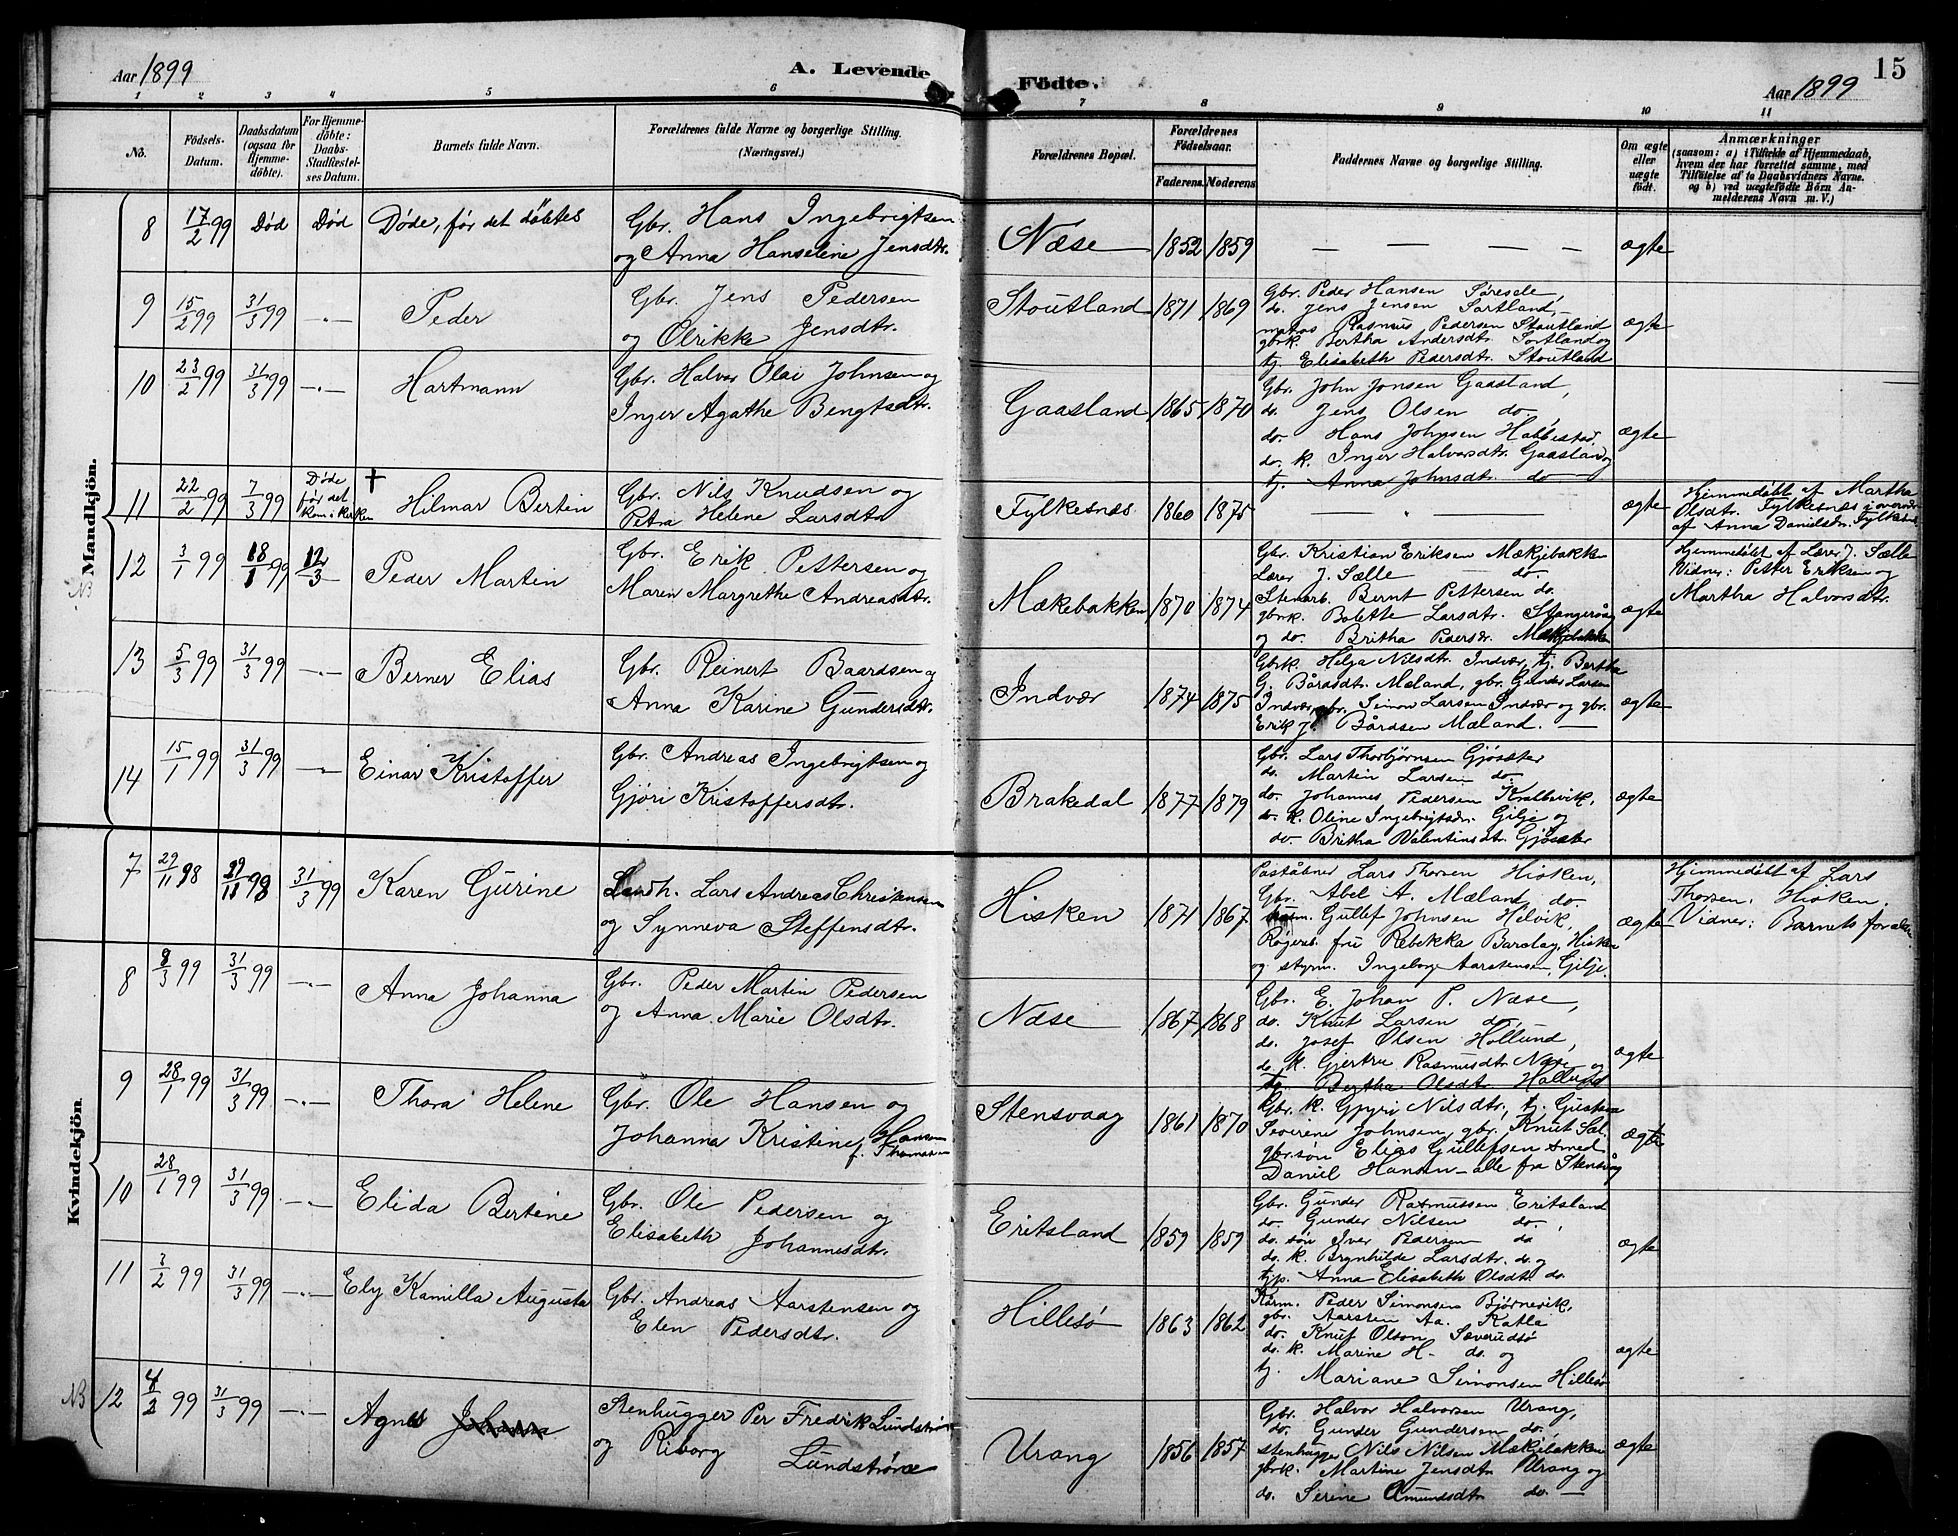 Aar 1899
A. Levende Födte.
Aar 1899
15
1 2 3 4 5 6 7 8 9 10 11
No.
Födsels-
Datum.
Daabsdatum
(ogsaa for
Hjemme-
döbte).
For Hjemme-
döbte:
Daabs-
Stadfæstel-
ses Datum.
Barnets fulde Navn.
Forældrenes fulde Navne og borgerlige Stilling.
(Næringsvei.)
Forældrenes Bopæl.
Forældrenes
Födselsaar.
Faderens. Moderens.
Faddernes Navne og borgerlige Stilling.
Om ægte
eller
uægte
födt.
Anmærkninger
(saasom: a) i Tilfælde af Hjemmedaab,
hvem der har forrettet samme, med
Tilföielse af to Daabsvidners Navne.
og b) ved uægtefödte Börn An-
melderens Navn m. V.)
Mandkjön.
8 17/2 99 Död Död Døde, før det døbtes
Gbr. Hans Ingebrigtsen
og Anna Hanseline Jensdtr.
Næse 1852 1859 — — — — ægte
9 15/2 99 31/3 99 -.- Peder
Gbr. Jens Pedersen
og Olrikke Jensdtr.
Stoutland 1871 1869
Gbr. Peder Hansen Søresele,
do. Jens Jensen Sortland,
matros Rasmus Pedersen Stoutland
gbrk. Bertha Andersdtr. Sortland og
tj. Elisabeth Pedersdtr. Stoutland
ægte
10 23/2 99 31/3 99 -.- Hartmann
Gbr. Halvor Olai Johnsen og
Inger Agathe Bengtsdtr.
Gaasland 1865 1870
Gbr. John Jonsen Gaasland,
do. Jens Olsen do.,
do. Hans Johnsen Habbestad.
do. k. Inger Halvorsdtr. Gaasland og
tj. Anna Johnsdtr. do —
ægte
11 22/2 99 7/3 99
Døde
før det
kom i kirken
† Hilmar Bertin
Gbr. Nils Knudsen og
Petra Helene Larsdtr
Fylkesnæs 1860 1875 — — — ægte
Hjemmedøbt af Martha
Olsdtr. Fylkesnæs i overvær
af Anna Danielsdr. Fylkesnæs
NB 12 3/1 99 18/1 99 12/3 Peder Martin
Gbr. Erik Pettersen og
Maren Margrethe Andreasdtr.
Mækebakken 1870 1874
Gbr. Kristian Eriksen Mækjebakke
Lærer J. Sælle — do.
Stenarb. Bernt Pettersen do.
gbrk. Bolette Larsdtr. Stangeråg
og do. Britha Pedersdr. Mækjebakke
ægte
Hjemmedøbt af Lærer J. Sælle
Vidner: Petter Eriksen og
Martha Halvorsdtr.
13 5/3 99 31/3 99 -.- Berner Elias
Gbr. Reinert Baardsen og
Anna Karine Gundersdtr.
Indvær 1874 1875
Gbrk. Helga Nilsdtr. Indvær, tj. Bertha
G. Bårdsdtr. Mæland, gbr. Gunder Larsen
Indvær, gbr. Simon Larsen Indvær og gbr.
Erik J. Bårdsen Mæland. —
ægte
14 15/1 99 31/3 99 -.- Einar Kristoffer
Gbr. Andreas Ingebrigtsen og
Gjøri Kristoffersdtr.
Brakedal 1877 1879
Gbr. Lars Thorbjørnsen Gjøsæter
do. Martin Larsen do.
do. Johannes Pedersen
do. k. Oline Ingebrigtsdr. Gilje og
do. Britha Valentinsdtr. Gjøsæter
ægte
Kvindekjön.
7 29/11 98 31/3 99 Karen Gurine
Lars Andreas Christensen
og Synneva Steffensdtr.
Hisken 1871 1867
Poståbner Lars Thorsen Hisken,
Gbr. Abel A. Mæland do.
Gullef Johnsen Helvik,
fru Rebekka Barclay, Hisken
og styrm. Ingeborg Aarstensen, Gilje.
ægte
Hjemmedøbt af Lars
Thorsen, Hisken.
Vidner: Barnets forældre
8 8/3 99 31/3 99 -.- Anna Johanna
Gbr. Peder Martin Pedersen
og Anna Marie Olsdtr.
Næse 1867 1868
Gbr. E. Johan P. Næse,
do. Knut Larsen do.,
do. Josef Olsen Hollund,
do. k. Gjertru Rasmusdtr. Næse og
tj. Bertha Olsdtr. Hollund
ægte
9 28/1 99 31/3 99 -.- Thora Helene
Gbr. Ole Hansen og
Johanna Kristine Hansen
f. Thomassen
Stensvaag 1861 1870
Gbr. k. Gyri Nilsdtr, tj. Gustava
Severine Johnsen, gbr. Knut Sal.
gbr.søn Elias Gullefsen smed
Daniel Hansen — alle fra Stensvåg
ægte
10 28/1 99 31/3 99 -.- Elida Bertine
Gbr. Ole Pedersen og
Elisabeth Johannesdtr.
Eritsland 1859 1859
Gbr. Gunder Rasmussen Eritsland
do. Gunder Nilsen do.,
do. søn Iver Pedersen do
do. k. Brynhilde Larsdtr. do. og
tjp. Anna Elisabeth Olsdtr do.
ægte
11 3/2 99 31/3 99 -.- Ely Kamilla Augusta
Gbr. Andreas Aarstensen og
Elen Pedersdtr.
Hillesø 1863 1862
Kårm. Peder Simonsen Bjørnevik,
gbr. Aarsten Aa. Katla
do. Knut Olson Sæverudsø
do. k. Marine H- do. og
tj. Mariane Simonsen Hillesø
ægte
NB 12 4/2 99 31/3 99 -.- Agnes Johanna
Stenhugger Per Fredrik Lundstrøm
og Riborg Lundstrøm
Urang 1856 1857
Gbr. Halvor Halvorsen Urang,
do. Gunder Gundersen do,
stenhugger Nils Nilsen Mækjebakken
gbrk. Martine Jensdtr Urang og
do. Serine Amundsdtr do. —
ægte